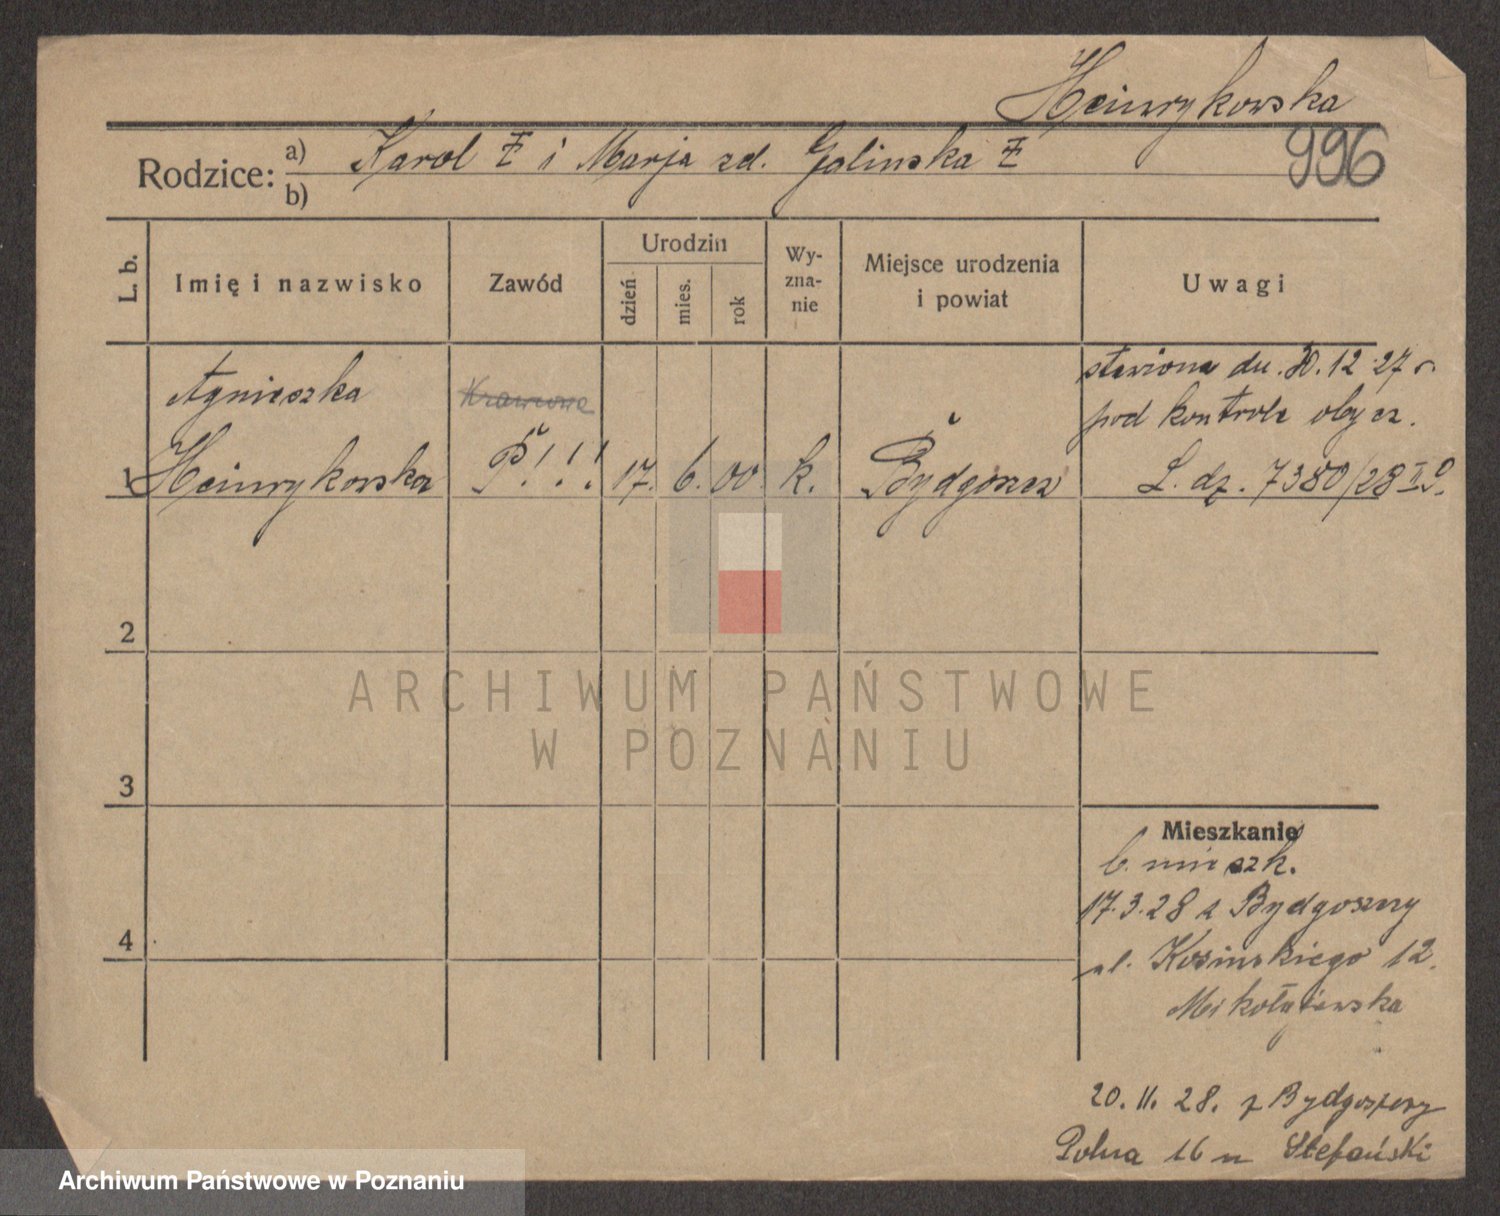 Heinrykowska
996
Rodzice: a) Karol i Marja zd. Golinska
b)
L. b.
Imię i nazwisko
Zawód
Urodzin
dzień
mies.
rok
Wy-
zna-
nie
Miejsce urodzenia
i powiat
Uwagi
Agnieszka
Krawcowa
stawiona dn. 30.12.27 r.
pod kontrolę obycz.
1 Heinrykowska P!!! 17. 6. 00 k. Bydgoszcz L. dz. 7380/28 II
2
3
4
Mieszkanie
b. mieszk.
17.3.28 z Bydgoszczy
ul. Kosinskiego 12.
Mikołajewska
20. 11. 28. z Bydgoszczy
Polna 16 u Stefański
ARCHIWUM PAŃSTWOWE
W POZNANIU
Archiwum Państwowe w Poznaniu